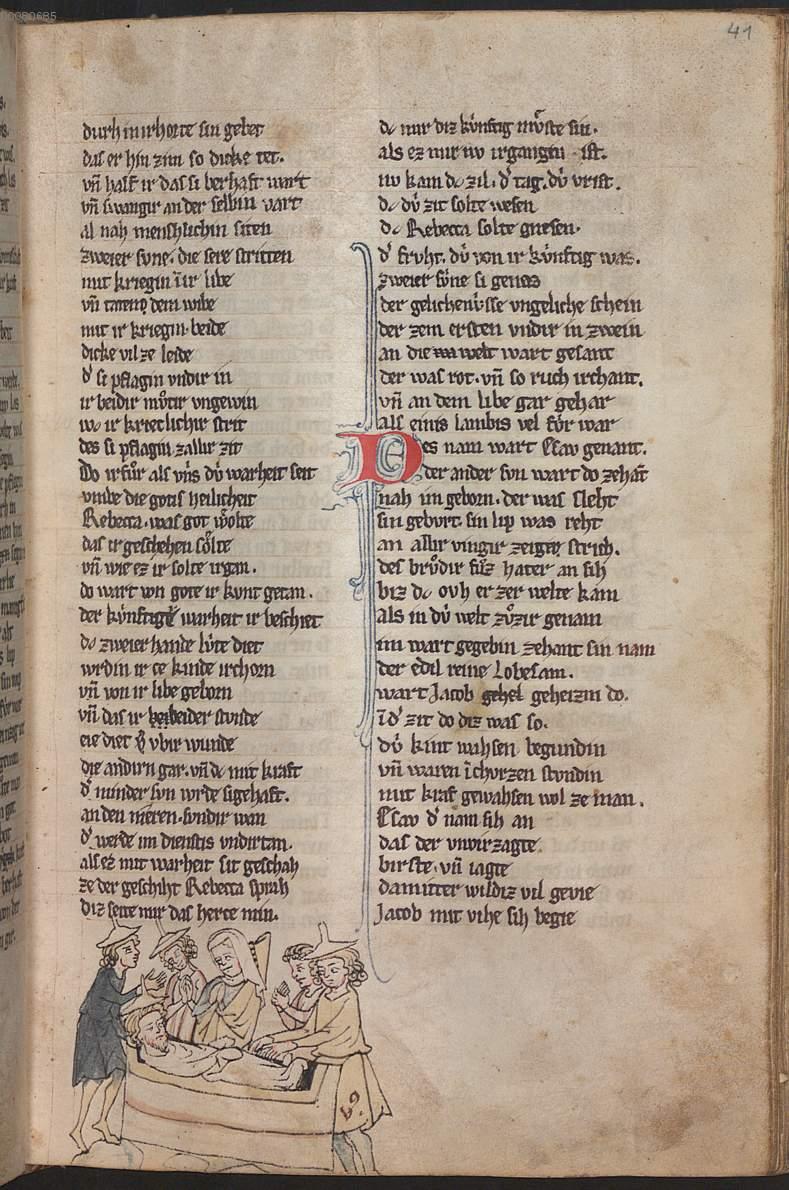 00080685
41
durh in irhorte sin gebet
das er hin zim so dicke tet.
vñ half ir das si berhaft wart
vñ swangir an der selbin vart
al nah menshlichin siten
zweier svne. die sere stritten
mit kriegin ī ir libe
vñ dem wibe
mit ir kriegin. beide
dicke vil ze leide
d᾽ si pflagin vndir in
ir beidir mv̊tir vngewin
ir krieclichir strit
des si pflagin zallir zit
Do irfůr als vns dv̂ warheit seit
vmbe die gotis heilicheit
Rebecca. was got wolte
das ir geschehen sôlte
vñ wie ez ir solte irgan.
do wart von gote ir kvnt getan.
der kv̂nftige warheit ir beschiet
dc zweier hande lv̂te diet
wrdin ir ce kinde irchorn
vñ von ir libe geborn
vñ das ir beider stvnde
eie diet vbir wunde
die andirn gar. vñ dc mit kraft
d᾽ minder svn wrde sigehaft.
an den meren. svndir wan
d᾽ werde im dienstis vndirtan.
als ez mit warheit sit geschah
ze der geschiht Rebecca sprah
diz seite mir das herce min.
dc mir diz kv̂nftig mv̊ste sin.
als ez mir nv irgangin ist.
nv kam dc zil. d᾽ tag. dv̂ vrist.
dc dv̂ zit solte wesen
dc Rebecca solte gnesen.
d᾽ frvht. dv̂ von ir kv̂nftig was.
zweier sv̂ne si genas
der geliche vngeliche schein
der zem ersten vndir in zwein
an die welt wart gesant
der was rot. vñ so ruch irchant.
vñ an dem libe gar gehar
als einis lambis vel fv̂r war
Des nam wart Esav genant.
der ander svn wart do zehāt
nah im geborn. der was sleht
sin gebvrt. sin lip was reht
an allir vingir zeigen strich.
des brv̊dir fůz hater an sih
biz dc ovh er zer welte kam
als in dv̂ welt zv̊zir genam
im wart gegebin zehant sin nam
der edil reine lobesam.
wart Jacob gehei geheizin do.
ī d᾽ zit do diz was so.
dv̂ kint wahsen begundin
vñ waren ī chvrzen stvndin
mit kraf gewahsen wol ze man.
Esav d᾽ nam sih an
das der vnvirzagte
birste. vñ iagte
damitter wildiz vil gevie
Jacob mit vihe sih begie